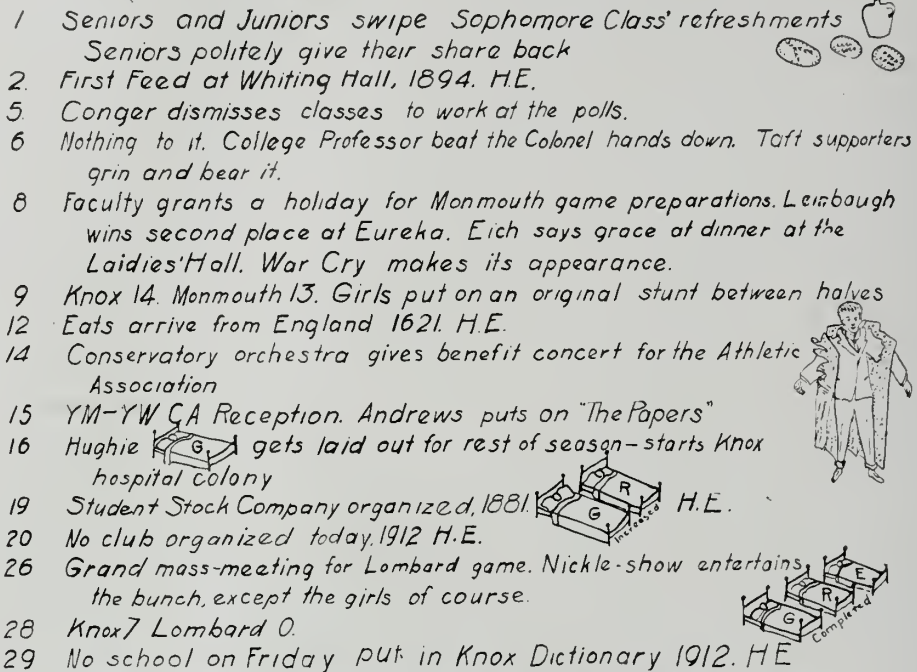 1 Seniors and Juniors swipe Sophomore Class' refreshments
Seniors politely give their share back
2. First Feed at Whiting Hall, 1894. H.E.
5. Conger dismisses classes to work at the polls.
6 Nothing to it. College Professor beat the Colonel hands down. Taft supporters
grin and bear it.
8 Faculty grants a holiday for Monmouth game preparations. Leinbaugh
wins second place at Eureka. Eich says grace at dinner at the
Laidies' Hall. War Cry makes its appearance.
9 Knox 14. Monmouth 13. Girls put on an original stunt between halves
12 Eats arrive from England 1621. H.E.
14 Conservatory orchestra gives benefit concert for the Athletic
Association
15 YM-YW CA Reception. Andrews puts on "The Papers"
16 Hughie G gets laid out for rest of season-starts Knox
hospital colony
19 Student Stock Company organized, 1881. G R Increased H.E.
20 No club organized today, 1912 H.E.
26 Grand mass-meeting for Lombard game. Nickle-show entertains
the bunch, except the girls of course.
G R E Completed
28 Knox 7 Lombard 0.
29 No school on Friday put in Knox Dictionary 1912. H E